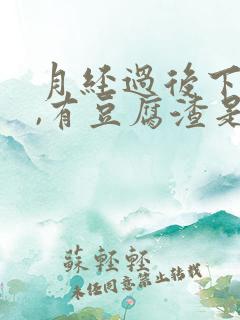 月經過後下
,有豆腐渣是
蘇輕輕
未经同意禁止转载